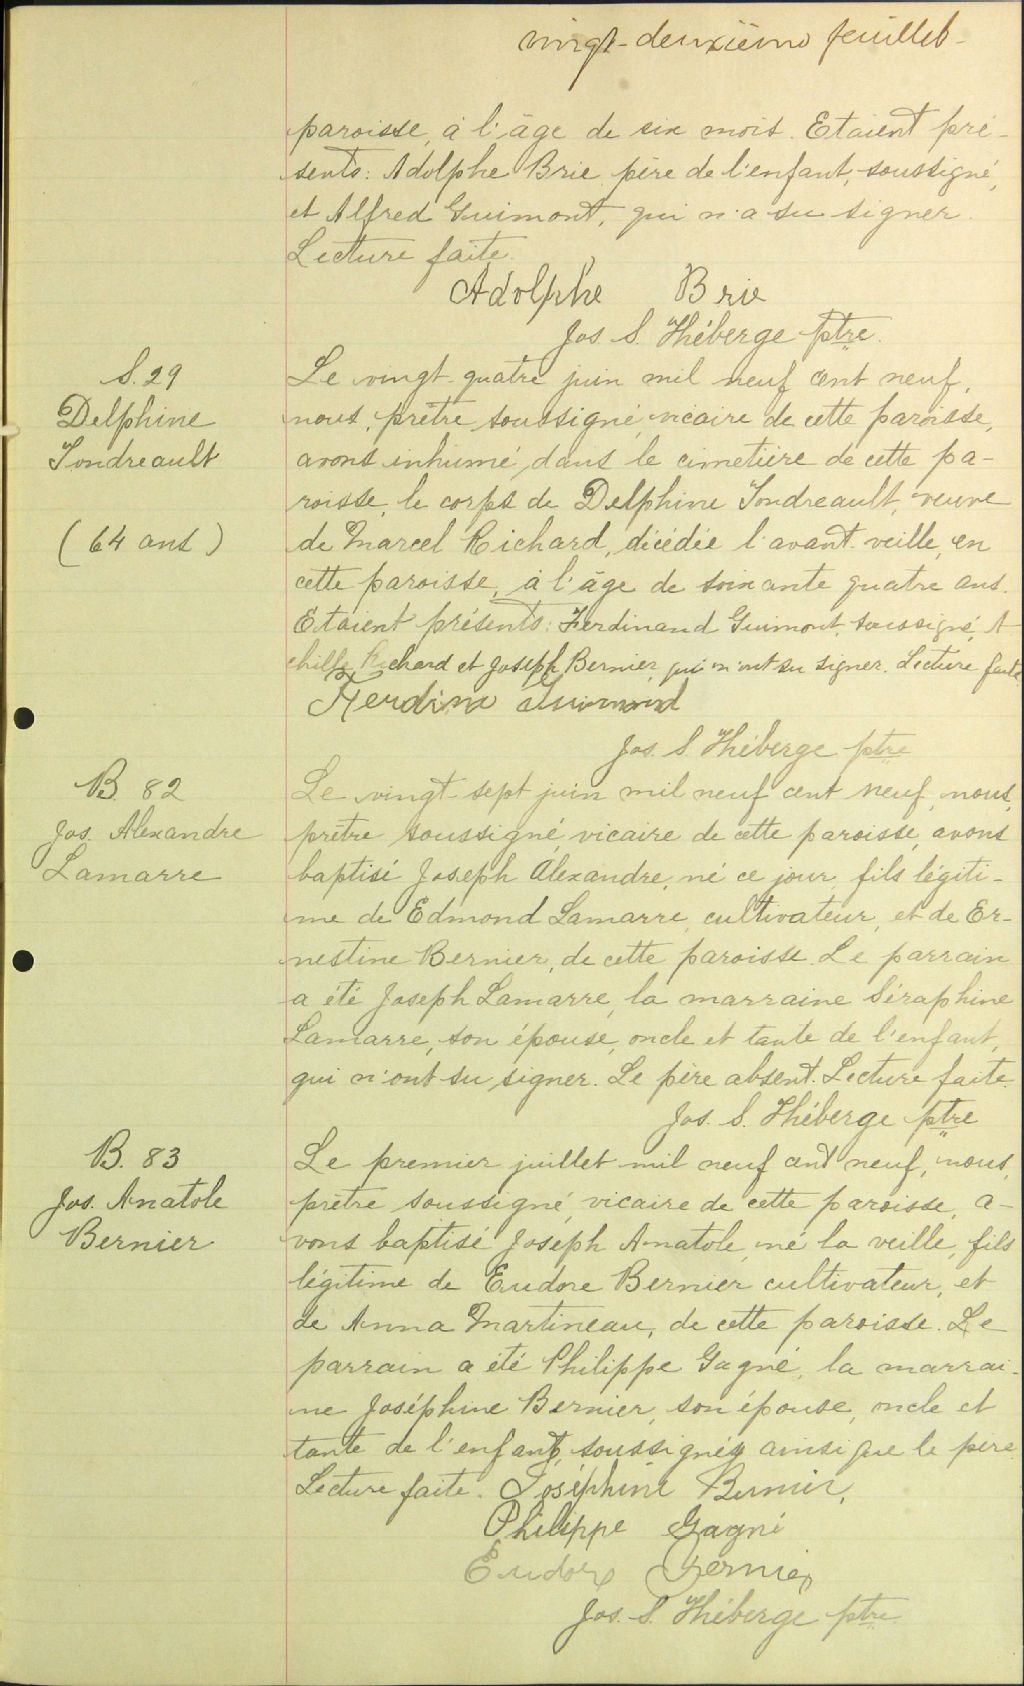 vingt-deuxième feuillet-
paroisse, à l'âge de six mois. Etaient pré-
sents: Adolphe Brie père de l'enfant, soussigné,
et Alfred Guimont, qui n'a su signer.
Lecture faite.
Adolphe Brie
Jos. S. Théberge ptre.
S. 29
Delphine
Tondreault
(64 ans)
Le vingt-quatre juin mil neuf cent neuf,
nous, prêtre soussigné, vicaire de cette paroisse,
avons inhumé dans le cimetière de cette pa-
roisse, le corps de Delphine Tondreault, veuve
de Marcel Richard, décédée l'avant-veille, en
cette paroisse, à l'âge de soixante quatre ans.
Etaient présents: Ferdinand Guimont, soussigné, A-
chille Richard et Joseph Bernier, qui n'ont su signer. Lecture faite.
Ferdina Guimond
Jos. S. Théberge ptre
B. 82
Jos. Alexandre
Lamarre
Le vingt-sept juin mil neuf cent neuf, nous,
prêtre soussigné, vicaire de cette paroisse, avons
baptisé Joseph Alexandre, né ce jour, fils légiti-
me de Edmond Lamarre, cultivateur, et de Er-
nestine Bernier, de cette paroisse. Le parrain
a été Joseph Lamarre, la marraine Séraphine
Lamarre, son épouse, oncle et tante de l'enfant,
qui n'ont su signer. Le père absent. Lecture faite.
Jos. S. Théberge ptre
B. 83
Jos. Anatole
Bernier
Le premier juillet mil neuf cent neuf, nous,
prêtre soussigné, vicaire de cette paroisse, a-
vons baptisé Joseph Anatole, né la veille, fils
légitime de Eudore Bernier cultivateur, et
de Anna Martineau, de cette paroisse. Le
parrain a été Philippe Gagné, la marrai-
ne Joséphine Bernier, son épouse, oncle et
tante de l'enfant, soussignés ainsi que le père.
Lecture faite. Joséphine Bernier,
Philippe Gagné
Eudore Bernier
Jos. S. Théberge ptre